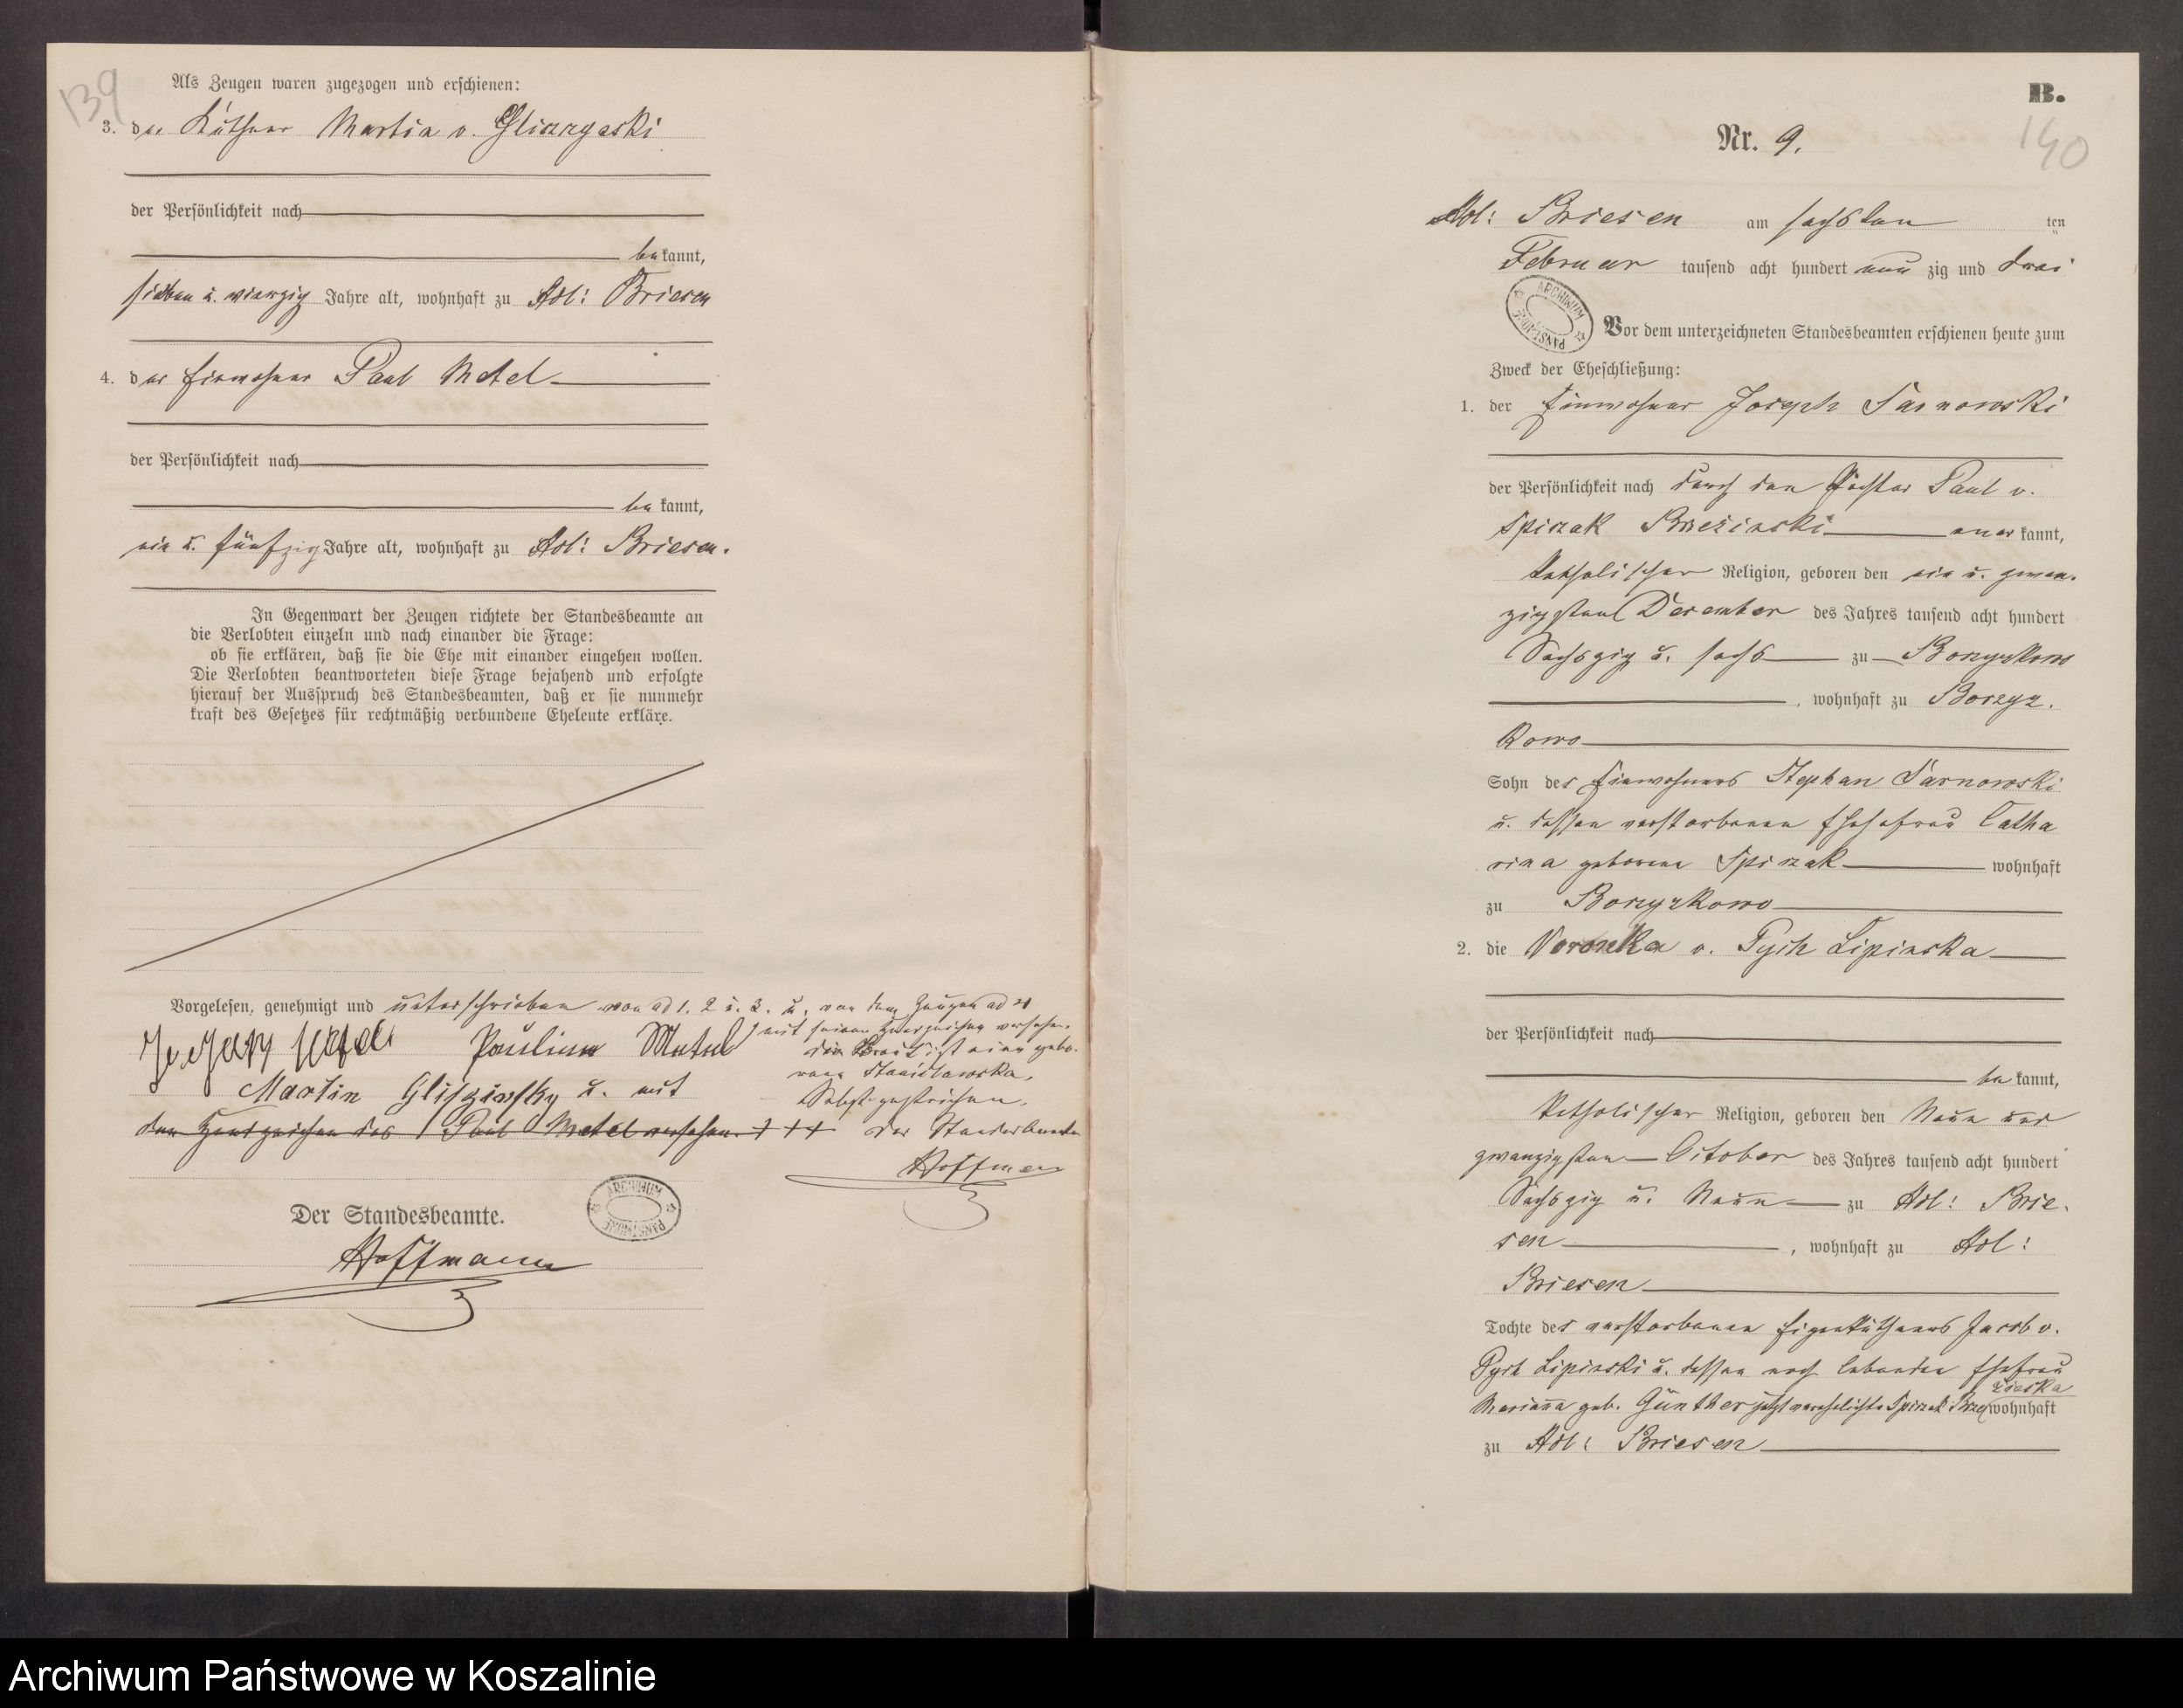 139
Als Zeugen waren zugezogen und erschienen:
3. der Käthner Martin v. Gliszczynski
der Persönlichkeit nach
bekannt,
sieben u. vierzig Jahre alt, wohnhaft zu Adl: Briesen
4. der Einwohner Paul Metel
der Persönlichkeit nach
bekannt,
ein u. fünfzig Jahre alt, wohnhaft zu Adl: Briesen.
In Gegenwart der Zeugen richtete der Standesbeamte an
die Verlobten einzeln und nach einander die Frage:
ob sie erklären, daß sie die Ehe mit einander eingehen wollen.
Die Verlobten beantworteten diese Frage bejahend und erfolgte
hierauf der Ausspruch des Standesbeamten, daß er sie nunmehr
kraft des Gesetzes für rechtmäßig verbundene Eheleute erkläre.
Vorgelesen, genehmigt und unterschrieben von ad 1. 2 u. 3. u. von dem Zeugen ad 4
mit seinen Handzeichen versehen.
Paulina Metel
die Braut ist eine gebo-
rene Stanislawska,
Martin Glisczinsky u. mit
den Handzeichen des Paul Metel versehen. +++
Der Standesbeamte
Hoffmann
ARCHIWUM PAŃSTWOWE
Der Standesbeamte.
Hoffmann
B.
140
Nr. 9.
Adl: Briesen am sechsten ten
Februar tausend acht hundert neun zig und drei
ARCHIWUM PAŃSTWOWE
Vor dem unterzeichneten Standesbeamten erschienen heute zum
Zweck der Eheschließung:
1. der Einwohner Joseph Tarnowski
der Persönlichkeit nach durch den Pächter Paul v.
Spiczak Brzezinski anerkannt,
katholischer Religion, geboren den ein u. zwan-
zigsten December des Jahres tausend acht hundert
Sechszig u. sechs zu Borzyskowo
, wohnhaft zu Borzys-
kowo
Sohn des Einwohners Stephan Tarnowski
u. dessen verstorbenen Ehefrau Catha
rina geborene Spiczak wohnhaft
zu Borzyskowo
2. die Veronka v. Pych Lipinska
der Persönlichkeit nach
bekannt,
katholischer Religion, geboren den Neun und
zwanzigsten October des Jahres tausend acht hundert
Sechszig u. Neun zu Adl: Brie-
sen , wohnhaft zu Adl:
Briesen
Tochte des verstorbenen Eigenkäthners Jacob v.
Pych Lipinski u. dessen noch lebenden Ehefrau
Marianna geb. Günther jetzt verehelichte Spiczak Brze zinska wohnhaft
zu Adl: Briesen
Archiwum Państwowe w Koszalinie